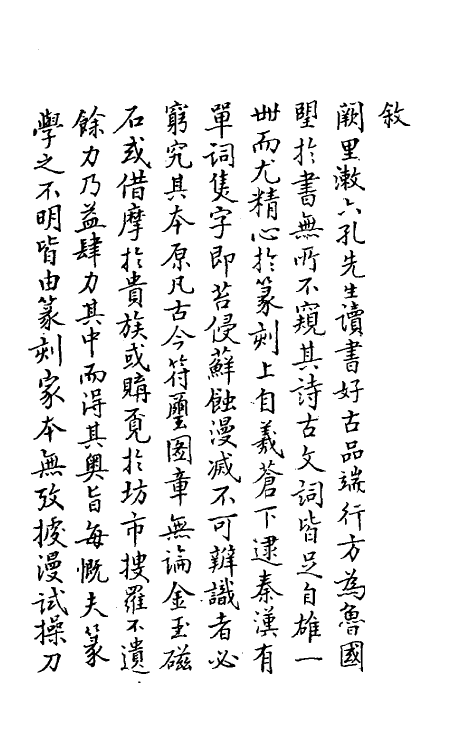 敘
闕里漱六孔先生讀書好古品端行方為魯國
朢於書無所不窺其詩古文詞皆足自雄一
丗而尤精心於篆刻上自羲蒼下逮秦漢有
單詞隻字即苔侵蘚蝕漫滅不可辨識者必
窮究其本原凡古今符璽圖章無論金玉磁
石或借摩於貴族或購覓於坊市搜羅不遺
餘力乃益肆力其中而得其奧旨每慨夫篆
學之不明皆由篆刻家本無攷據漫試操刀